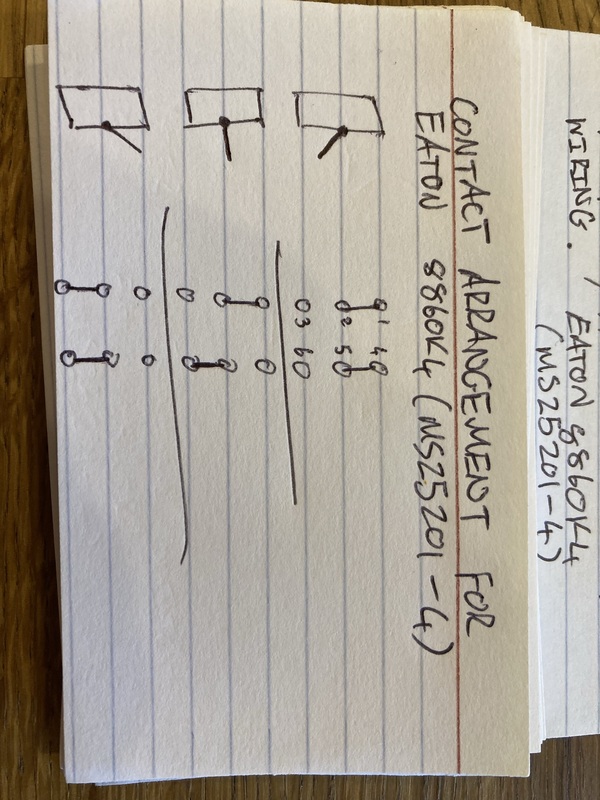 WIRING. / EATON 8860K4
(MS25201-4)
CONTACT ARRANGEMENT FOR
EATON 8860K4 (MS25201-4)
1 4
2 5
3 6